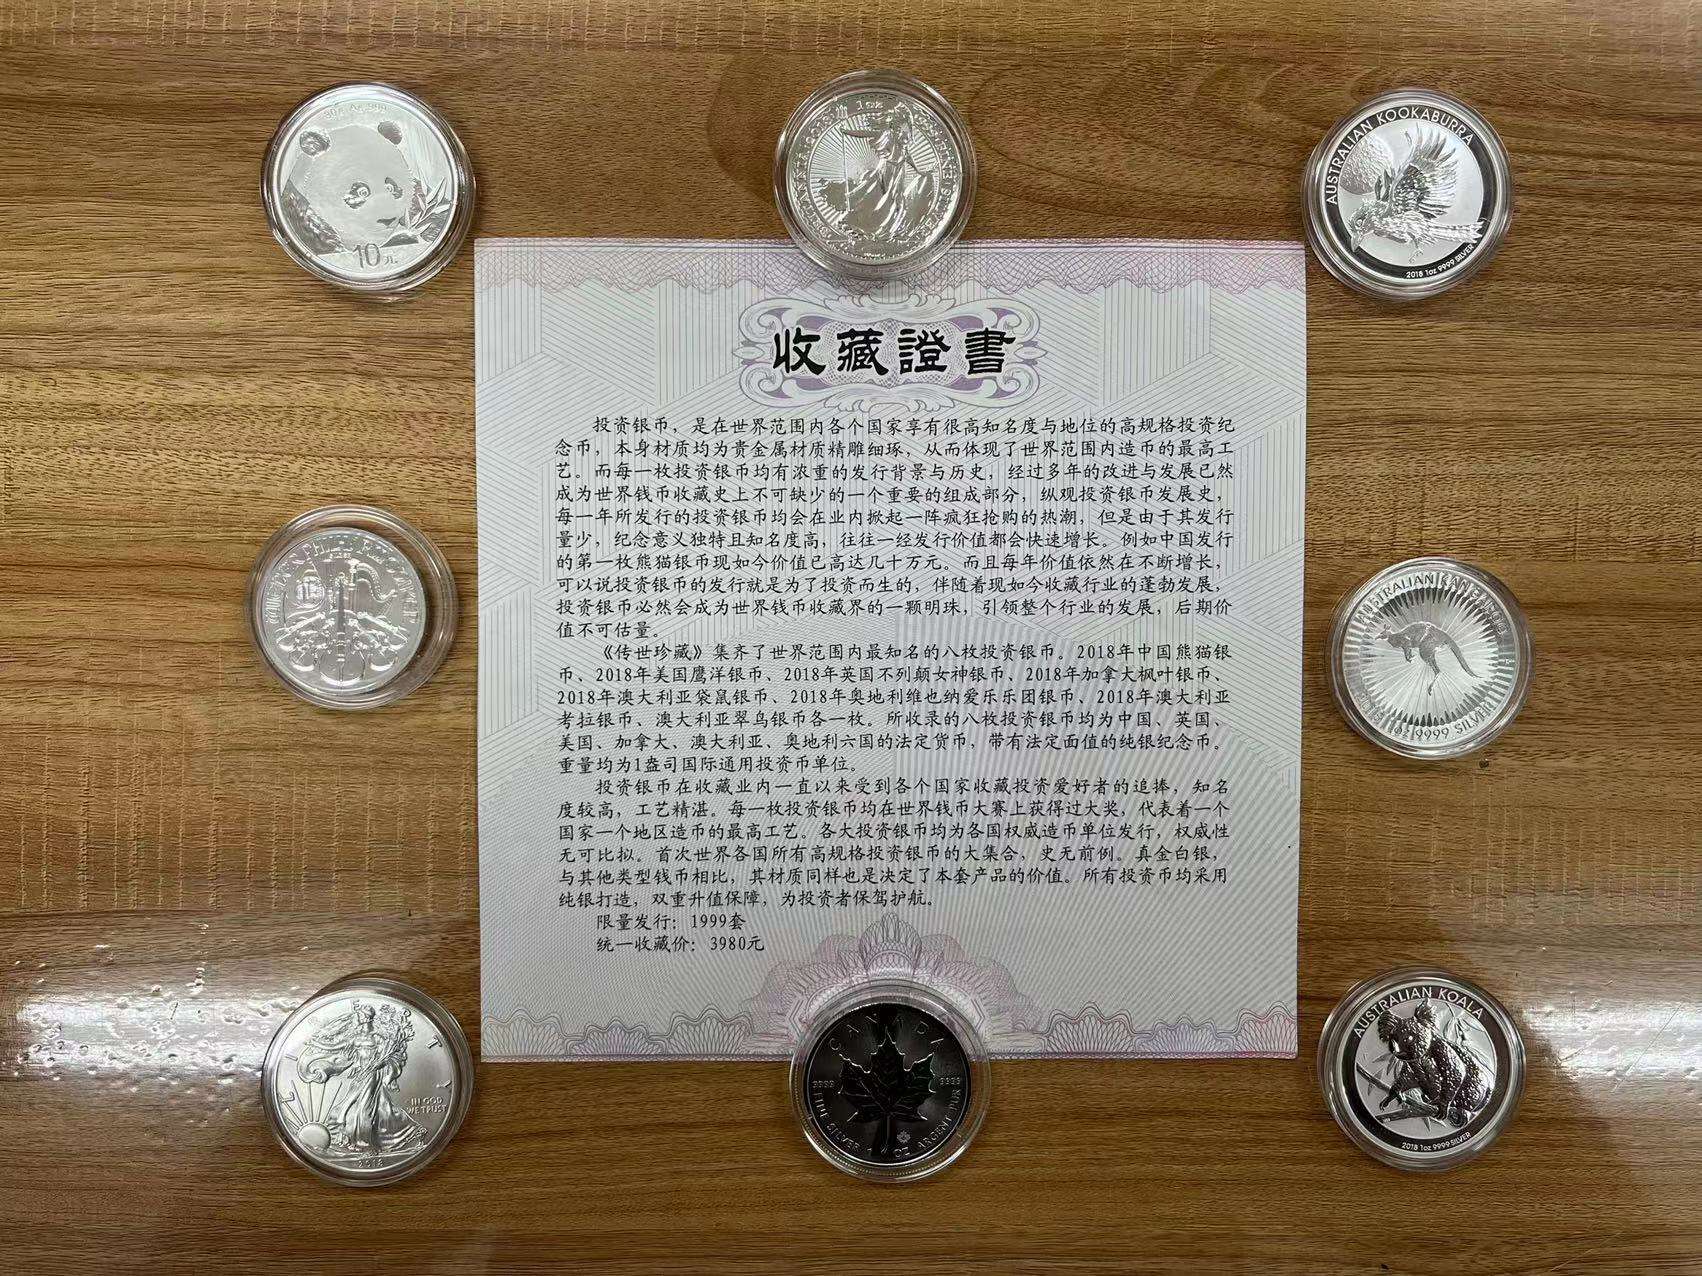 30g Ag .999
10元
1
BRITANNIA 2018
AUSTRALIAN KOOKABURRA
2018 1oz 9999 SILVER
收藏證書
投资银币，是在世界范围内各个国家享有很高知名度与地位的高规格投资纪
念币，本身材质均为贵金属材质精雕细琢，从而体现了世界范围内造币的最高工
艺。而每一枚投资银币均有浓重的发行背景与历史，经过多年的改进与发展已然
成为世界钱币收藏史上不可缺少的一个重要的组成部分，纵观投资银币发展史，
每一年所发行的投资银币均会在业内掀起一阵疯狂抢购的热潮，但是由于其发行
量少，纪念意义独特且知名度高，往往一经发行价值都会快速增长。例如中国发行
的第一枚熊猫银币现如今价值已高达几十万元。而且每年价值依然在不断增长，
可以说投资银币的发行就是为了投资而生的，伴随着现如今收藏行业的蓬勃发展，
投资银币必然会成为世界钱币收藏界的一颗明珠，引领整个行业的发展，后期价
值不可估量。
《传世珍藏》集齐了世界范围内最知名的八枚投资银币。2018年中国熊猫银
币、2018年美国鹰洋银币、2018年英国不列颠女神银币、2018年加拿大枫叶银币、
2018年澳大利亚袋鼠银币、2018年奥地利维也纳爱乐乐团银币、2018年澳大利亚
考拉银币、澳大利亚翠鸟银币各一枚。所收录的八枚投资银币均为中国、英国、
美国、加拿大、澳大利亚、奥地利六国的法定货币，带有法定面值的纯银纪念币。
重量均为1盎司国际通用投资币单位。
投资银币在收藏业内一直以来受到各个国家收藏投资爱好者的追捧，知名
度较高，工艺精湛。每一枚投资银币均在世界钱币大赛上获得过大奖，代表着一个
国家一个地区造币的最高工艺。各大投资银币均为各国权威造币单位发行，权威性
无可比拟。首次世界各国所有高规格投资银币的大集合，史无前例。真金白银，
与其他类型钱币相比，其材质同样也是决定了本套产品的价值。所有投资币均采用
纯银打造，双重升值保障，为投资者保驾护航。
限量发行：1999套
统一收藏价：3980元
WIENER PHILHARMONIKER
AUSTRALIAN KANGAROO
1oz 9999 SILVER
LIBERTY
IN GOD
WE TRUST
2018
CANADA
9999 9999
FINE SILVER 1 OZ ARGENT PUR
AUSTRALIAN KOALA
2018 1oz 9999 SILVER